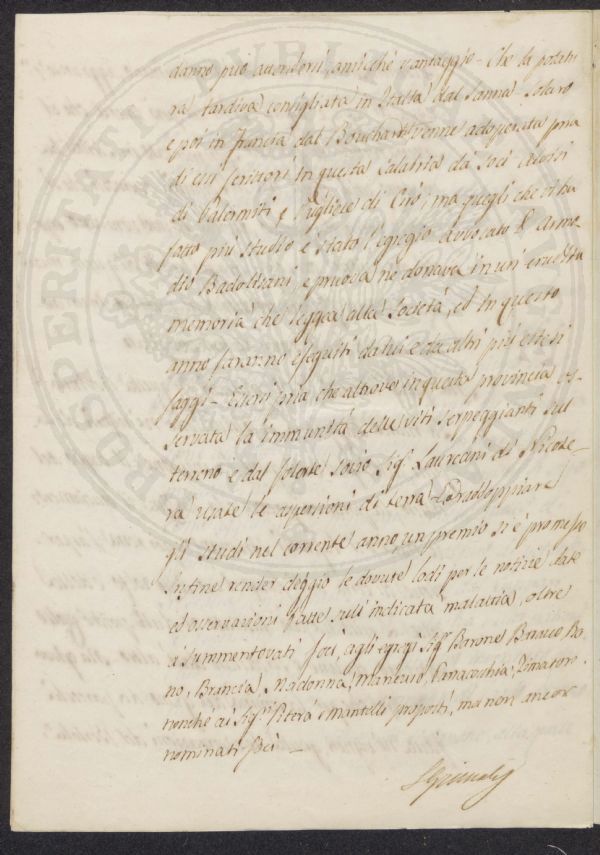 danno può attendersi, anzicchè vantaggio – Che la potatu-
ra tardiva consigliata in Italia dal Sanna Solaro
e poi in Francia dal Bouchard venne adoperata pria
di essi scrittori in questa Calabria da' Soci
di Palermiti, e Pugliese di Cirò; ma quegli che vi ha
fatto più studio è stato l'egregio Avvocato D. Arno-
dio Badolisani, e pruova ne donava in un' erudita
memoria che leggea alla Società, ed in questo
anno saranno eseguiti da lui e da altri più estesi
saggi – Essersi pria che altrove in questa provincia os-
servata la immunità delle viti serpeggianti sul
terreno e dal solerte socio Sig. Laureani di Nicote-
ra usate le aspersioni di terra – Per raddoppiare
gli studi nel corrente anno, un premio si è promesso
Infine render deggio le dovute lodi per le notizie date
ed osservazioni fatte sull'indicata malattia, oltre
a' summentovati Soci, agli egregi Sigri Barone Bracco, Bo-
no, Brancia, Madonna, Pimatoro
nonchè ai Sigri Piterà e Mantelli proposti, ma non ancora
nominati Soci –
LGrimaldi
PROSPERITATI PUBLICAE